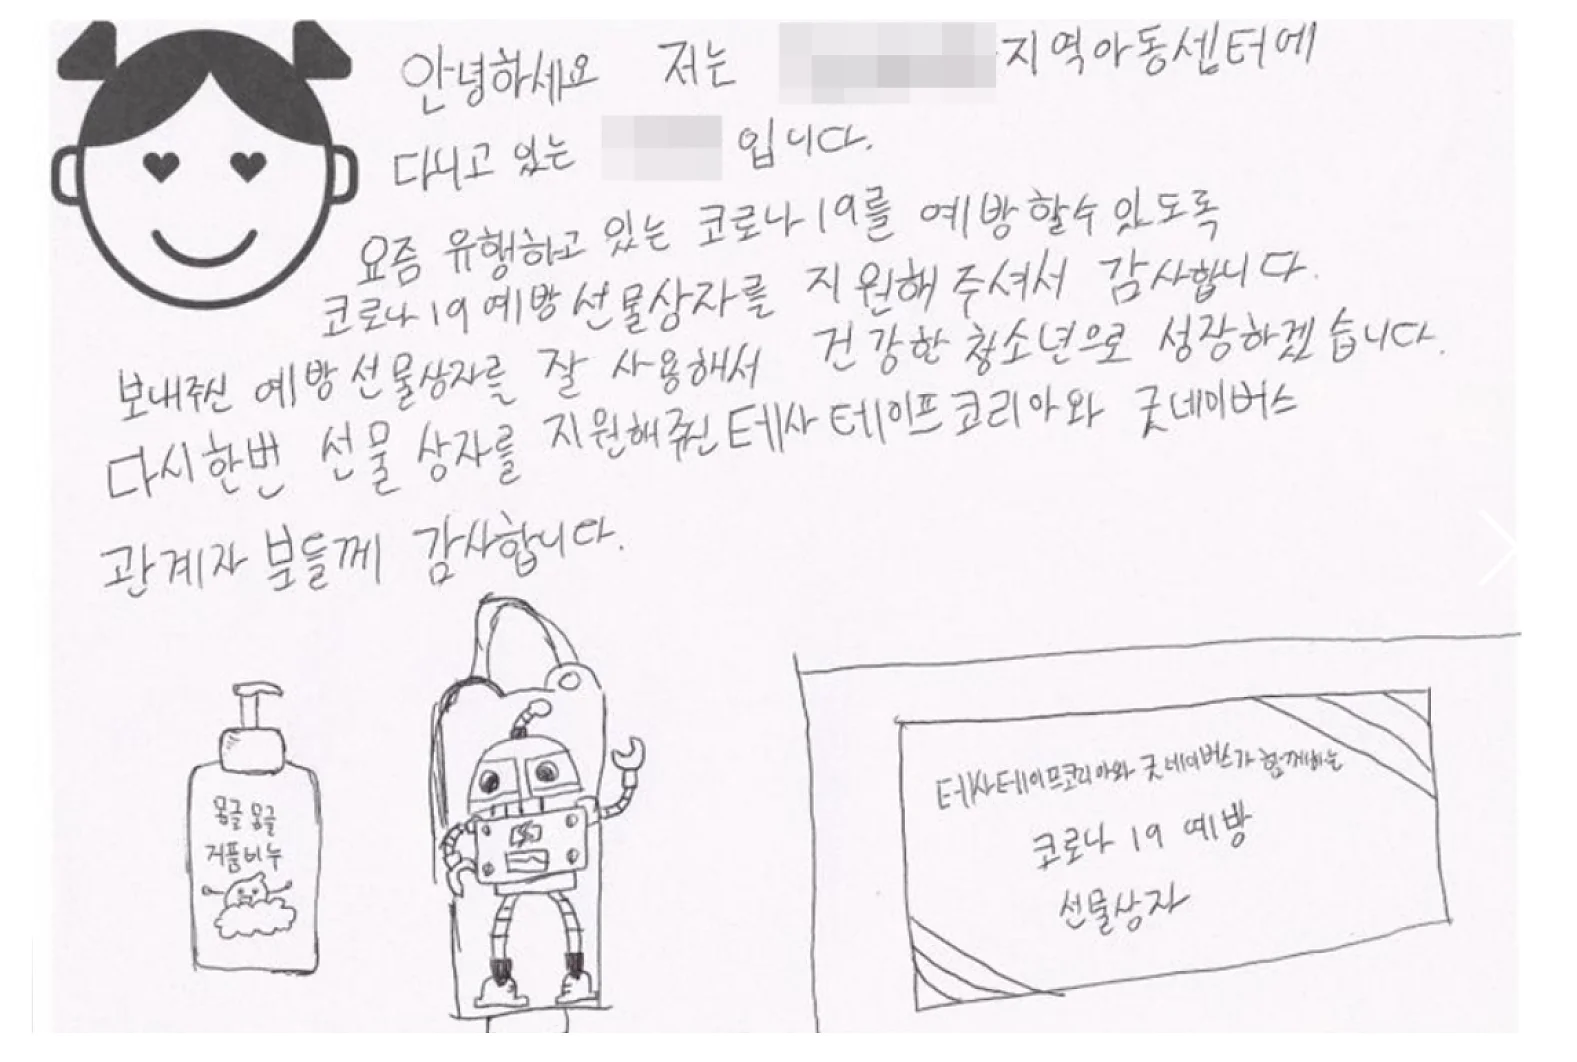 안녕하세요 저는 지역아동센터에
다니고 있는 입니다.
요즘 유행하고 있는 코로나19를 예방할수 있도록
코로나19 예방선물상자를 지원해주셔서 감사합니다.
보내주신 예방선물상자를 잘 사용해서 건강한 청소년으로 성장하겠습니다.
다시한번 선물상자를 지원해주신 테사테이프코리아와 굿네이버스
관계자 분들께 감사합니다.
몽글몽글
거품비누
테사테이프코리아와 굿네이버스가 함께하는
코로나19 예방
선물상자